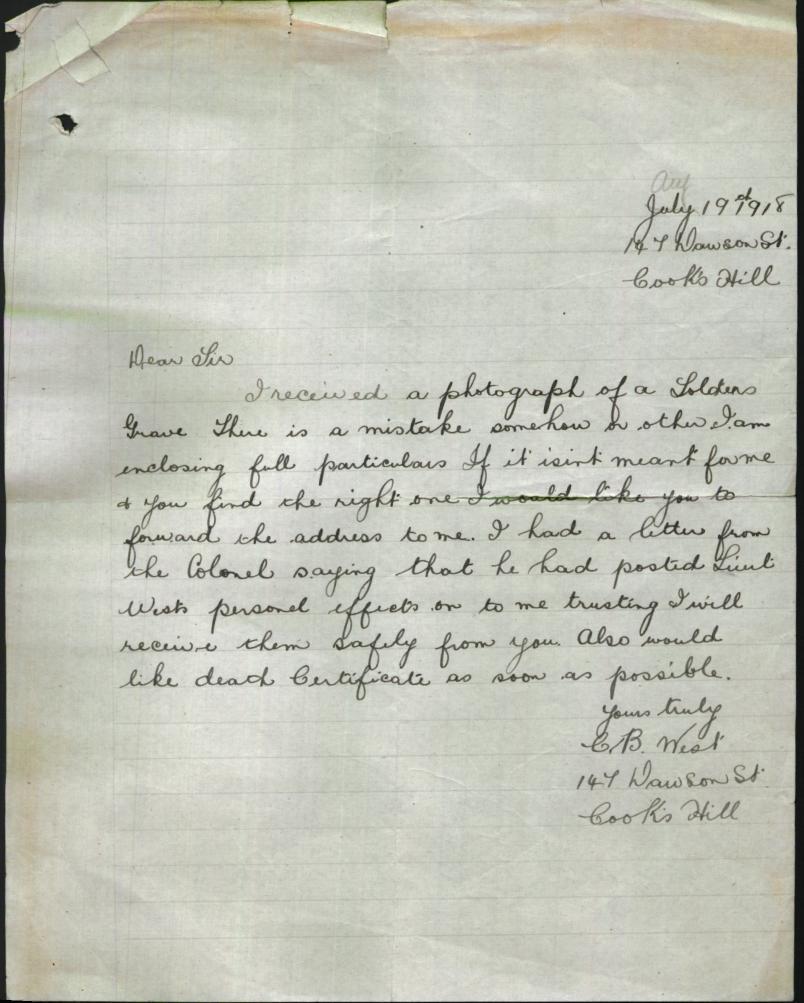 Aug
July 19rd 1918
147 Dawson St.
Cook's Hill
Dear Sir
I received a photograph of a Solders
Grave There is a mistake somehow or other I am
enclosing full particulars If it isint meant for me
& you find the right one I would like you to
forward the address to me. I had a letter from
the Colonel saying that he had posted Lieut
Wests personel effects on to me trusting I will
receive them safely from you. Also would
like death Certificate as soon as possible.
Yours truly
C. B. West
147 Dawson St.
Cook's Hill